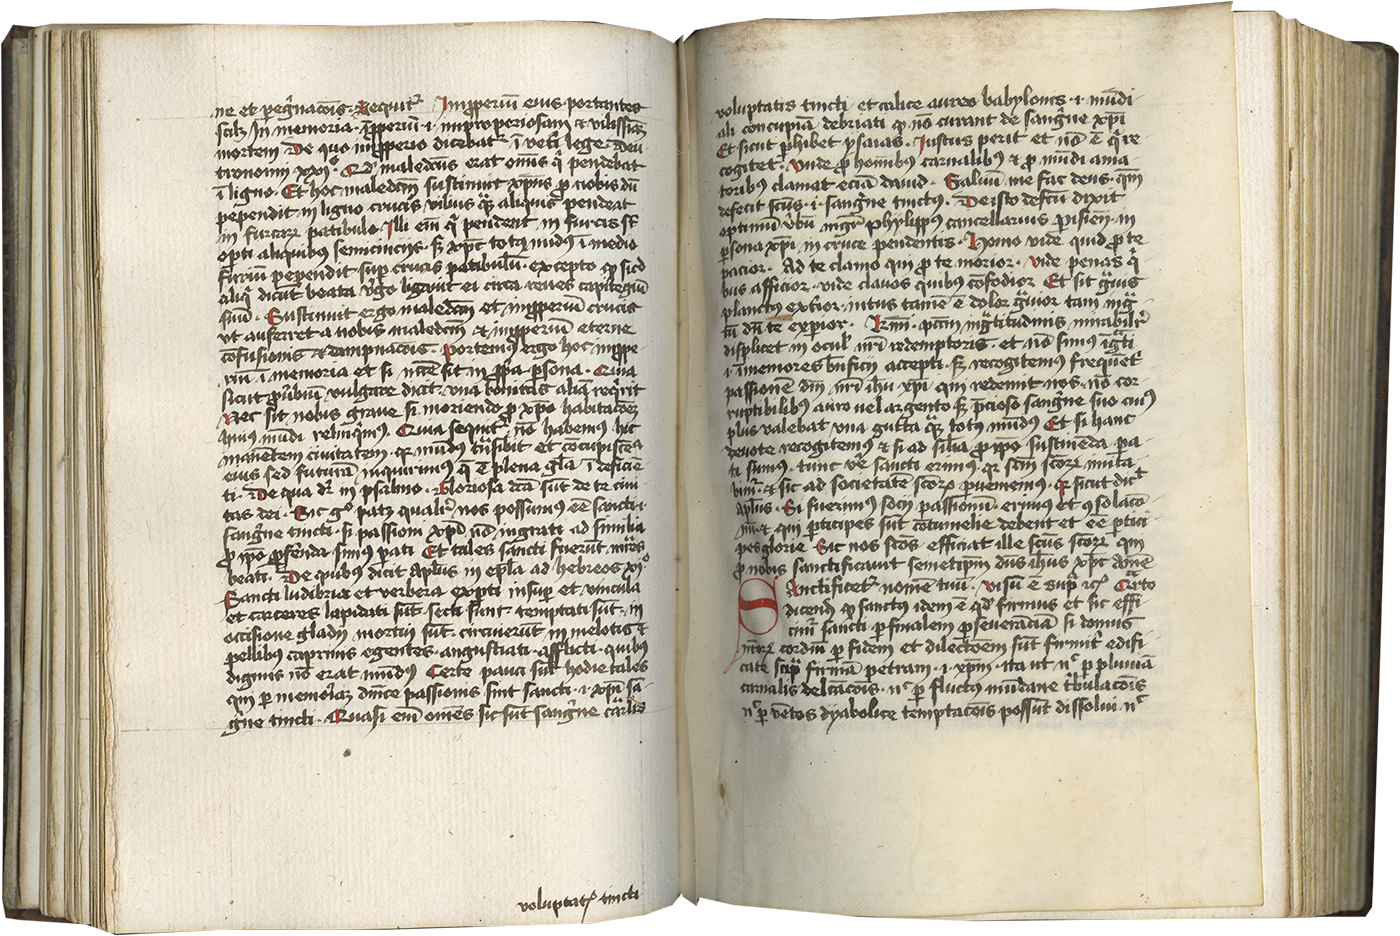 ne et peg̃nacõis. Sequit᷑ Imp̃periũ eius portantes
scilz In memoria. ĩp̃periũ .i. improperiosam et vilissimã
mortem De quo imp̃perio dicebat᷑ ĩ vet̃i lege. deu-
tronomii xxj°. Qd̃ maledc̃us erat om̃is q̃ pendebat
ĩ ligno. Et hoc maledc̃m sustinuit xp̃us ꝓ nobis dũ
pependit in ligno crucis
in furcaꝝ patibulo. Illi em̃ q̃ pendent in furcis st̃
opti aliquibus semicinctijs. sꝫ xp̃c totꝰ nudꝰ ĩ medio
ꝑpendit sup̃ crucis patibulũ. excepto ꝙ sicd̃
aliq̃ dicũt beata v̓go ligavit ei circa renes capitegiũ
suũ. Sustinuit ergo maledc̃m et imp̃periũ crucis
vt auferret a nobis maledc̃m et imp̃periũ eterne
cõfusionis et dampnacõis. Portemꝰ ergo hoc imp̃pe-
riũ ĩ memoria et si nc̃cẽ sit in p̃p̃a p̃sona. Quia
sicut ꝓv̓biũ vulgare dicit. vna bonitas aliã req̃rit
Nec sit nobis grave si moriendo ꝓ xp̃o habitacõeꝫ
huiꝰ mũdi relinq̃mꝰ. Quia sequit᷑. nõ habemꝰ hic
manẽtem civitatem. qꝛ mũdus tñsibit et cõcupiscẽa
eius sed futurã inquirimꝰ q̃ ẽ plena gl̃a ĩ deficiẽ-
ti. De qua dr̃ in psalmo. Gloriosa dc̃a sũt de te civi-
tas dei. Sic g° patꝫ qualit̓ nos possumꝰ eẽ sancti .i.
sang̃ne tincti. si passioni xp̃i nõ ingrati ad similia
ꝓ ip̃o ꝓferenda simꝰ pati Et tales sancti fuerũt mr̃es
beati. De quibus dicit apl̃us in ep̃la ad hebreos xj°
Sancti ludibria et verbera exp̃ti insup̃ et vincula
et carceres lapidati sũt. secti sunt. temptati sũt. in
occisione gladij mortui sũt. circuierũt in melotis et
pellibus caprinis egentes. angustiati. afflicti. quibus
dignus nõ erat mũdus Certe pauci sũt hodie tales
qui ꝑ memoriaꝫ passionis sint sancti .i. xp̃i sã-
g̃ne tincti. Quasi em̃ om̃es sic sũt sang̃ne c̃arl̃is
voluptat᷑ tincti
voluptatis tincti et calice aureo babylonis .i. mũdi-
ali concupĩa debriati ꝙ nõ curant de sang̃ne xp̃i
Et sicut ꝓhibet ysaias. Iustus perit et nõ ẽ q̃ re
cogitet. Vnde ꝓ hominibus carnalibus et ꝓ mũdi ama
toribus clamat eciã david. Salvũ me fac deus. qm̃
defecit sc̃us .i. sang̃ne tinctus. De isto defcũ dixit
optimũ v̓bũ mg̃r phylippus cancellarius parisieñ. in
ꝑsona xp̃i in cruce pendentis. Homo vide quid ꝓ te
pacior. Ad te clamo qui ꝓ te morior. vide penas q̃
bus afficior. vide clavos quibus cõfodior Et sit g̃vis
planctus ext̓ior. intus tamẽ ẽ dolor g̃vior tam ing̃
tũ dũ te experior. pc̃cm ing̃titudinis mirabilit̓
displicet in ocul̓ nr̃i redemptoris. et nõ simus ig̃ti
.i. ĩmemores bn̓ficij accepti. sꝫ recogitemus frequẽt̓
passionẽ dñi nr̃i ih̃u xp̃i qui redemit nos. nõ cor
ruptibilibus auro vel argento sꝫ p̃cioso sangne suo cuiꝰ
plus valebat vna gutta q̃ꝫ totꝰ mũdus Et si hanc
devote recogitemꝰ et si ad sil̃ia ꝓ ip̃o sustinẽda pa-
ti simus. tunc v̓e sancti erimus. qꝛ scõꝝ imita-
et sic ad societatẽ scõꝝ ꝑveniemus. qꝛ sicut dic̃t
apl̃us. Si fuerimꝰ socij passionũ. erimus et cõsolacõ-
nũ. et qui ꝑticipes sũt cõtumelie debent et eẽ ꝑtici-
pes glorie Sic nos sc̃os efficiat ille sc̃us scõꝝ qui
ꝓ nobis sanctificavit semetip̃m dñs ih̃us xp̃c Amẽ
Sanctificet᷑ nomẽ tuũ. Visũ ẽ sup̃
dicend̃ ꝙ sanctus idem ẽ qd̃ firmus et sic effi
cimr̃ sancti ꝑ finalem ꝑseveranciã si domus
nr̃oꝝ cordiũ ꝑ fidem et dilectõem sũt firmit̓ edifi-
cate sup̃ firmã petram .i. xp̃m. ita ut nc̃ ꝑ pluviã
carnalis delcãcois. nc̃ ꝑ fluctus mũdane t̓bulacõis
nc̃ ꝑ vẽtos dyabolice temptacõis possũt dissolvi. nc̃